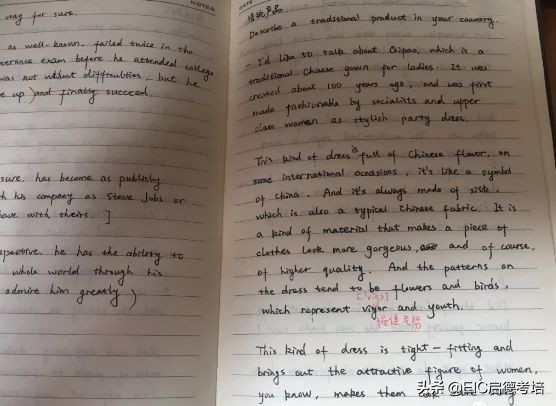 NOTES
way for sure.
as well-known, failed twice in the
entrance exam before he attended college
was not without difficulties, but he
e up) and finally succeed.
sure, has become as publicly
h his company as Steve Jobs or
have with theirs. ]
spective, he has the ability to
whole world through his
admire him greatly )
DATE
传统产品
Describe a traditional product in your country.
- I'd like to talk about Qipao, which is a
traditional Chinese gown for ladies. It was
created about 100 years ago, and was first
made fashionable by socialists and upper
class women as stylish party dress.
This kind of dress is full of Chinese flavor, on
some international occasions, it's like a symbol
of China. And it's always made of silk,
which is also a typical Chinese fabric. It is
a kind of material that makes a piece of
clothes look more gorgeous, and and of course,
of higher quality. And the patterns on
the dress tend to be flowers and birds,
which represent vigor and youth.
This kind of dress is tight-fitting and
brings out the attractive figure of women,
you know, makes them look
头条 @EIC启德考培